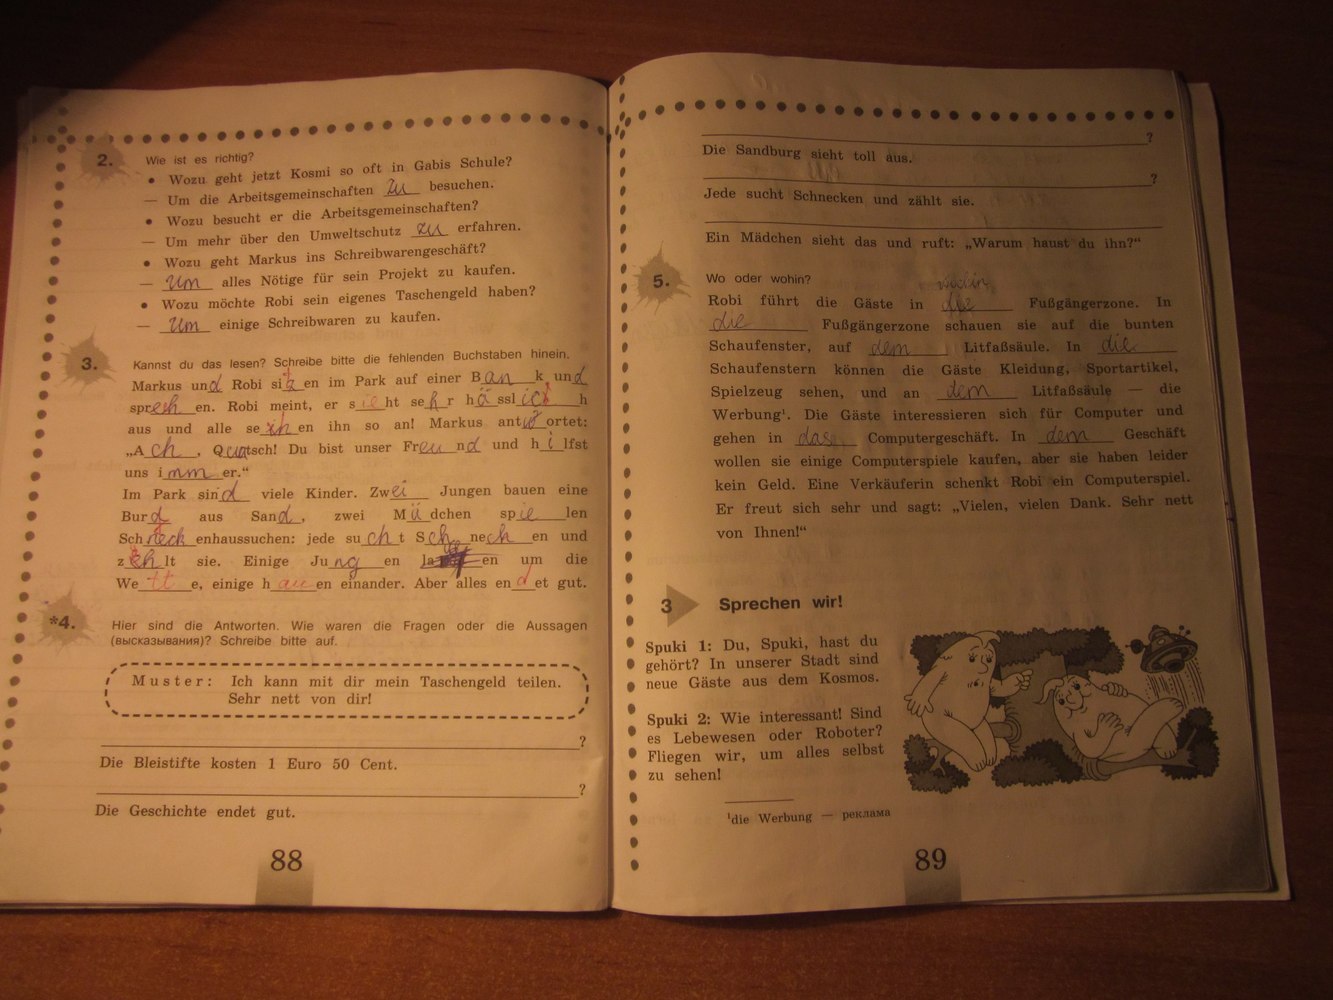 2. Wie ist es richtig?
• Wozu geht jetzt Kosmi so oft in Gabis Schule?
— Um die Arbeitsgemeinschaften zu besuchen.
• Wozu besucht er die Arbeitsgemeinschaften?
— Um mehr über den Umweltschutz zu erfahren.
• Wozu geht Markus ins Schreibwarengeschäft?
— Um alles Nötige für sein Projekt zu kaufen.
• Wozu möchte Robi sein eigenes Taschengeld haben?
— Um einige Schreibwaren zu kaufen.
3. Kannst du das lesen? Schreibe bitte die fehlenden Buchstaben hinein.
Markus und Robi sitzen im Park auf einer Bank und
sprechen. Robi meint, er sieht sehr hässlich
aus und alle sehen ihn so an! Markus antwortet:
„Ach, Quatsch! Du bist unser Freund und hilfst
uns immer.“
Im Park sind viele Kinder. Zwei Jungen bauen eine
Burg aus Sand, zwei Mädchen spielen
Schneckenhaussuchen: jede sucht Schnecken und
zählt sie. Einige Jungen la en um die
Wette, einige hauen einander. Aber alles endet gut.
*4. Hier sind die Antworten. Wie waren die Fragen oder die Aussagen
(высказывания)? Schreibe bitte auf.
Muster: Ich kann mit dir mein Taschengeld teilen.
Sehr nett von dir!
?
Die Bleistifte kosten 1 Euro 50 Cent.
?
Die Geschichte endet gut.
88
?
Die Sandburg sieht toll aus.
?
Jede sucht Schnecken und zählt sie.
Ein Mädchen sieht das und ruft: „Warum haust du ihn?“
5. Wo oder wohin?
wohin
Robi führt die Gäste in die Fußgängerzone. In
die Fußgängerzone schauen sie auf die bunten
Schaufenster, auf dem Litfaßsäule. In die
Schaufenstern können die Gäste Kleidung, Sportartikel,
Spielzeug sehen, und an dem Litfaßsäule — die
Werbung¹. Die Gäste interessieren sich für Computer und
gehen in das Computergeschäft. In dem Geschäft
wollen sie einige Computerspiele kaufen, aber sie haben leider
kein Geld. Eine Verkäuferin schenkt Robi ein Computerspiel.
Er freut sich sehr und sagt: „Vielen, vielen Dank. Sehr nett
von Ihnen!“
3 Sprechen wir!
Spuki 1: Du, Spuki, hast du
gehört? In unserer Stadt sind
neue Gäste aus dem Kosmos.
Spuki 2: Wie interessant! Sind
es Lebewesen oder Roboter?
Fliegen wir, um alles selbst
zu sehen!
¹die Werbung — реклама
89